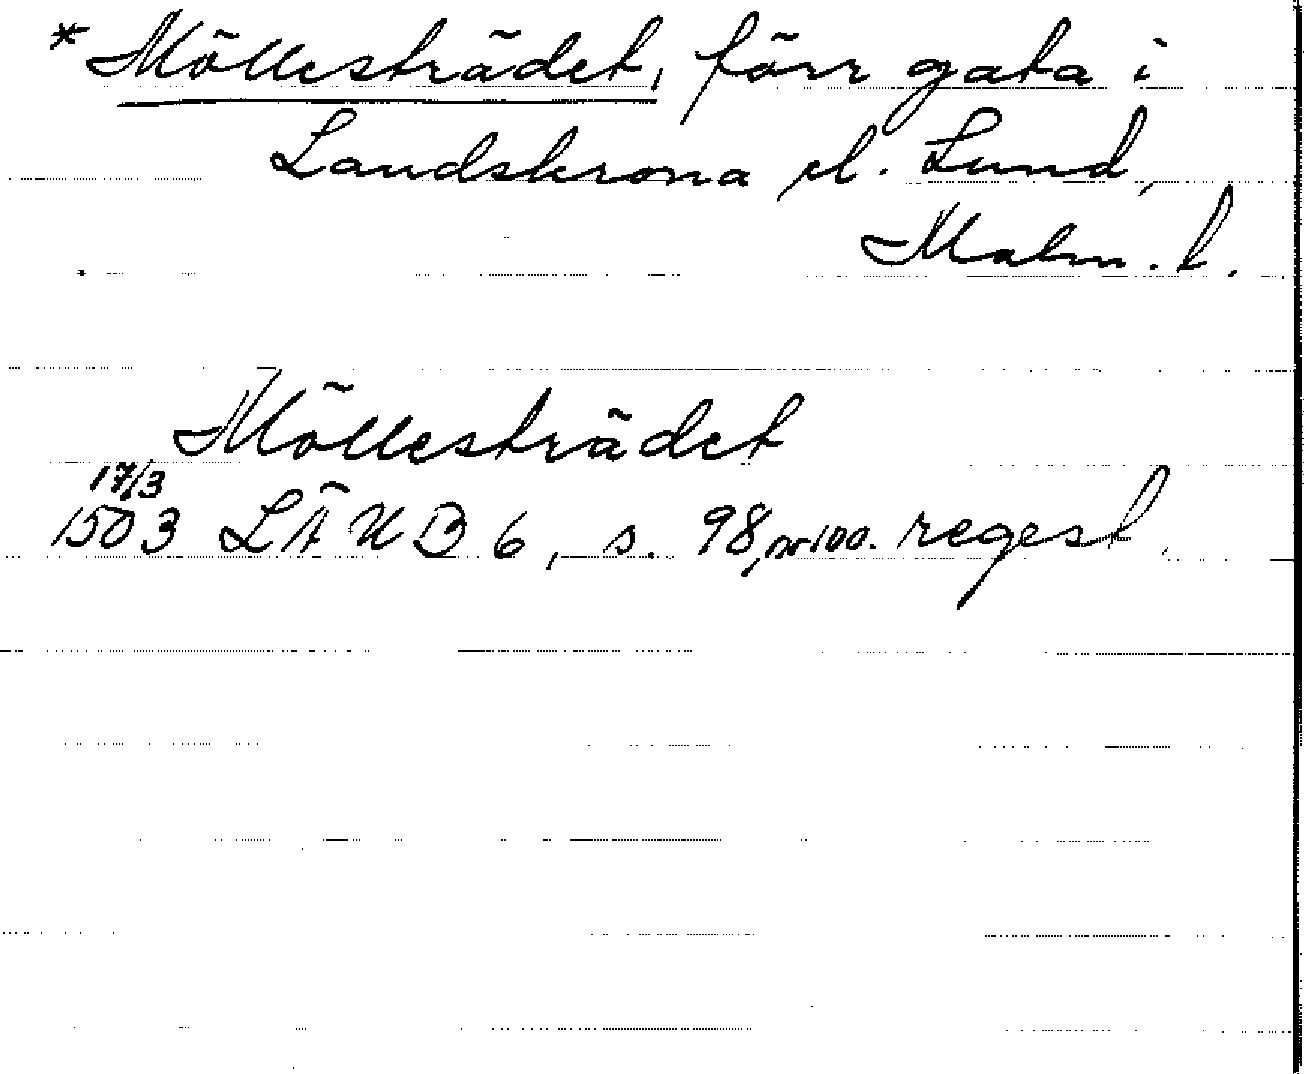 * Möllesträdet, förr gata i
Landskrona el. Lund,
Malm. l.
Möllesträdet
17/3
1503 LÄUB 6, s. 98, nr 100. regest.